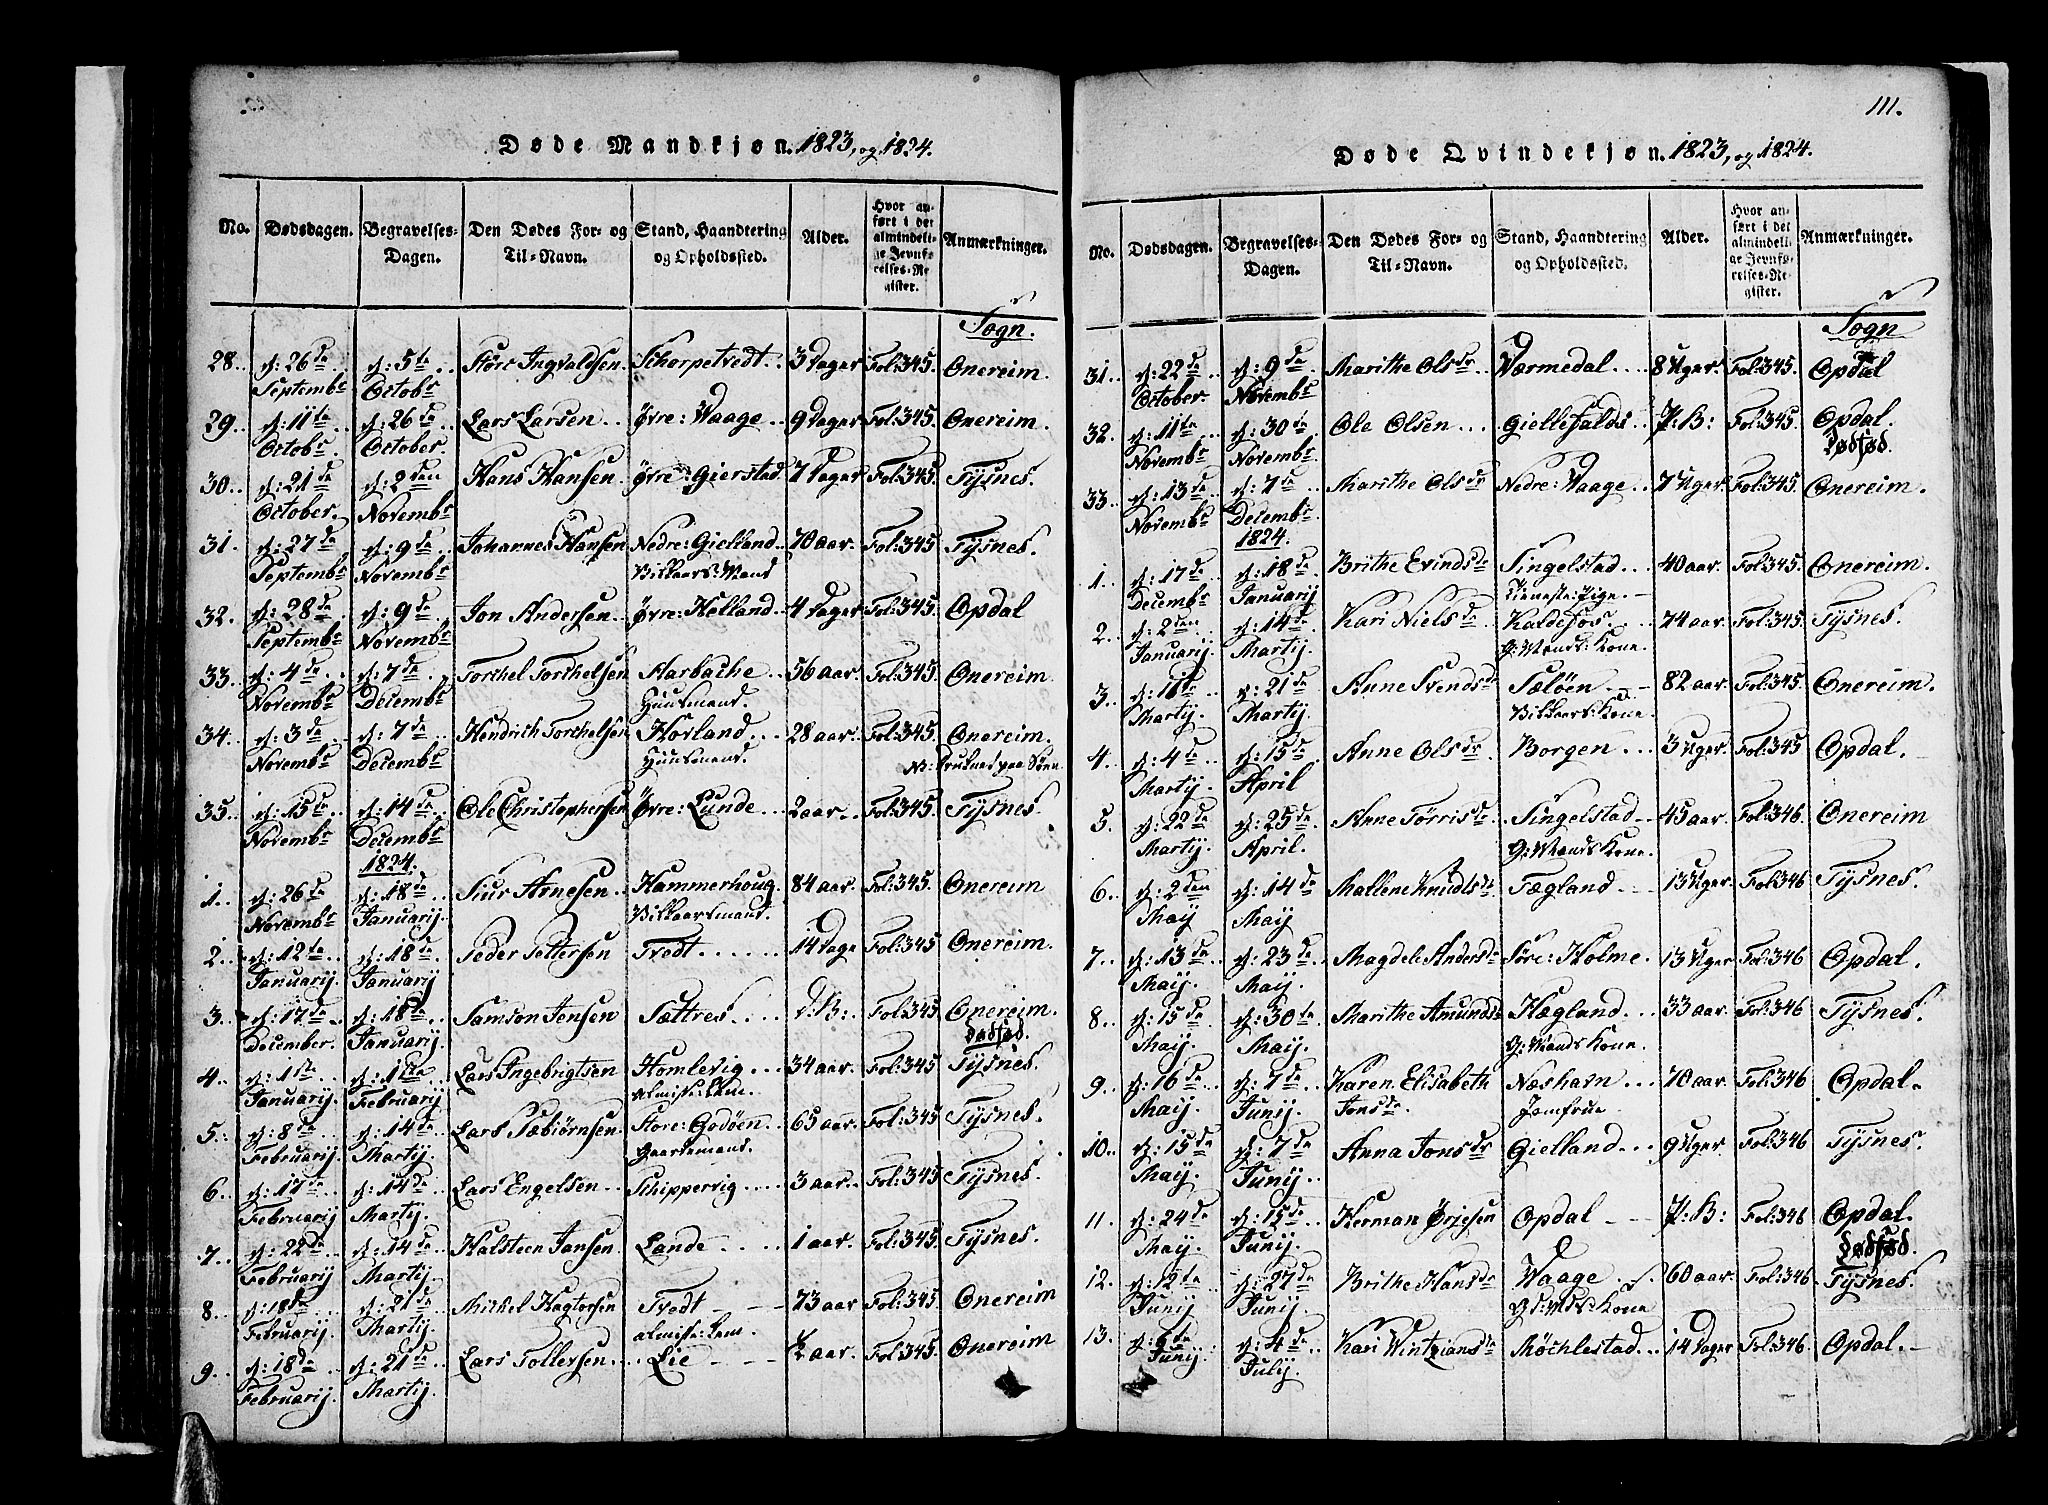 Døde Mandkjøn. 1823, og 1824.
No. Dødsdagen. Begravelses-Dagen. Den Dødes For- og Til-Navn. Stand, Haandtering og Opholdssted. Alder. Hvor anført i det almindelige Jevnførelses-Register. Anmærkninger.
Sogn.
28. d: 26de Septembr d: 5te Octobr Ingvaldsen 3 Dager Fol:345. Onereim.
29. d: 11te Octobr. d: 26de October. Lars Larsen Øvre: Waage 9 Dager Fol:345. Onereim.
30. d: 21de October. d: 2den Novembr Hans Hansen Øvre: Gierstad 7 Dager Fol:345 Tysnes.
31. d: 27de Septembr d: 9de Novembr Johannes Hansen Nedre: Gielland 70 aar. Fol:345 Tysnes.
32. d: 28de Septembr d: 9de Novembr Jon Andersen Øvre: Helland 4 Dager Fol:345. Opdal
33. d: 4de Novembr d: 7de Decembr Torchel Torchelsen 56 aar. Fol:345. Onereim
Huusmand.
34. d: 3de Novembr d: 7de Decembr Hendrich Torchelsen Hovland 28 aar. Fol:345. Onereim.
Huusmand. Nb: Drukned paa Søen
35. d: 15de Novembr d: 14de Decembr Ole Christophersen Øvre: Lunde 2 aar. Fol:345. Tysnes.
1824.
1. d: 26de Novembr d: 18de Januarij. Siur Arnesen Hammerhoug 84 aar. Fol:345. Onereim
2. d: 12te Januarij. d: 18de Januarij Peder Pettersen Tvedt 14 Dage Fol:345 Onereim.
3. d: 17de December. d: 18de Januarij. Samson Jensen Sættres D:B: Fol:345 Onereim.
dødfød.
4. d: 1ste Januarij. d: 1ste Februarij Lars Ingebrigtsen Homlevig 34 aar. Fol:345. Tysnes.
almisse: Lem.
5. d: 8de Februarij. d: 14de Martij. Lars Sæbiørnsen Store: Godøen 65 aar. Fol:345 Tysnes.
Gaardmand.
6. d: 17de Februarij d: 14de Martij. Lars Engelsen Schippervig 3 aar. Fol:345 Tysnes.
7. d: 22de Februarij d: 14de Martij Halsteen Jansen Lande 1 aar. Fol:345. Tysnes.
8. d: 18de Februarij. d: 21de Martij. Michel Tvedt 73 aar Fol:345. Onereim
almisse: Lem.
9. d: 18de Februarij. d: 21de Martij. Lars Tollevsen Lie 1/2 aar. Fol:345. Onereim
111.
Døde Qvindekjøn. 1823, og 1824.
No. Dødsdagen. Begravelses-Dagen. Den Dødes For- og Til-Navn. Stand, Haandtering og Opholdssted. Alder. Hvor anført i det almindelige Jevnførelses-Register. Anmærkninger.
Sogn
31. d: 22de October. d: 9de Novembr Marithe Olsdr Wærmedal 8 Uger. Fol:345. Opdal
32. d: 11te Novembr d: 30te Novembr. Ole Olsen P:B: Fol:345. Opdal.
dødfød.
33. d: 13de Novembr d: 7de Decembr Marithe Olsdr Nedre: Waage 7 Uger Fol:345. Onereim.
1824.
1. d: 17de Decembr d: 18de Januarij Brithe Evindsdr Singelstad 40 aar. Fol:345. Onereim.
Tieneste: Pige.
2. d: 2den Januarij. d: 14de Martij. Kari Nielsdr Kaldefos 74 aar. Fol:345. Tysnes.
G: Mands: Kone.
3. d: 11te Martij. d: 21de Martij. Anne Svendsdr Sæløen 82 aar. Fol:345 Onereim.
4. d: 4de Martij. d: 15de April Anne Olsdr Borgen 3 Uger. Fol:345 Opdal.
5. d: 22de Martij. d: 25de April. Anne Tørrisdr Singelstad 45 aar. Fol:346. Onereim
G: Mands Kone.
6. d: 2den Maij d: 14de Maij. Mallene Knudtsdr Tægland 13 Uger. Fol:346 Tysnes.
7. d: 13de Maij. d: 23de Maij. Magdele Andersdr Søre: Holme 13 Uger Fol:346 Opdal.
8. d: 15de Maij. d: 30te Maij. Marithe Amundsdr Hægland 33 aar. Fol:346 Tysnes.
G: Mands Kone.
9. d: 16de Maij. d: 7de Junij. Karen Elisabeth Jonsdr. Næshavn 70 aar. Fol:346 Opdal.
Jomfrue
10. d: 15de Maij. d: 7de Junij. Anna Jonsdr Gielland 9 Uger Fol:346 Tysnes.
11. d: 24de Maij. d: 15de Junij. Herman Ørjesen Opdal P:B: Fol:346 Opdal.
dødfød.
12. d: 12te Junij d: 27de Junij. Brithe Hansdr Waage 60 aar. Fol:346 Tysnes.
Gd: Mds: Kone
13. d: 6de Junij d: 4de Julij. Kari Møchlestad 14 Dager Fol:346. Opdal.